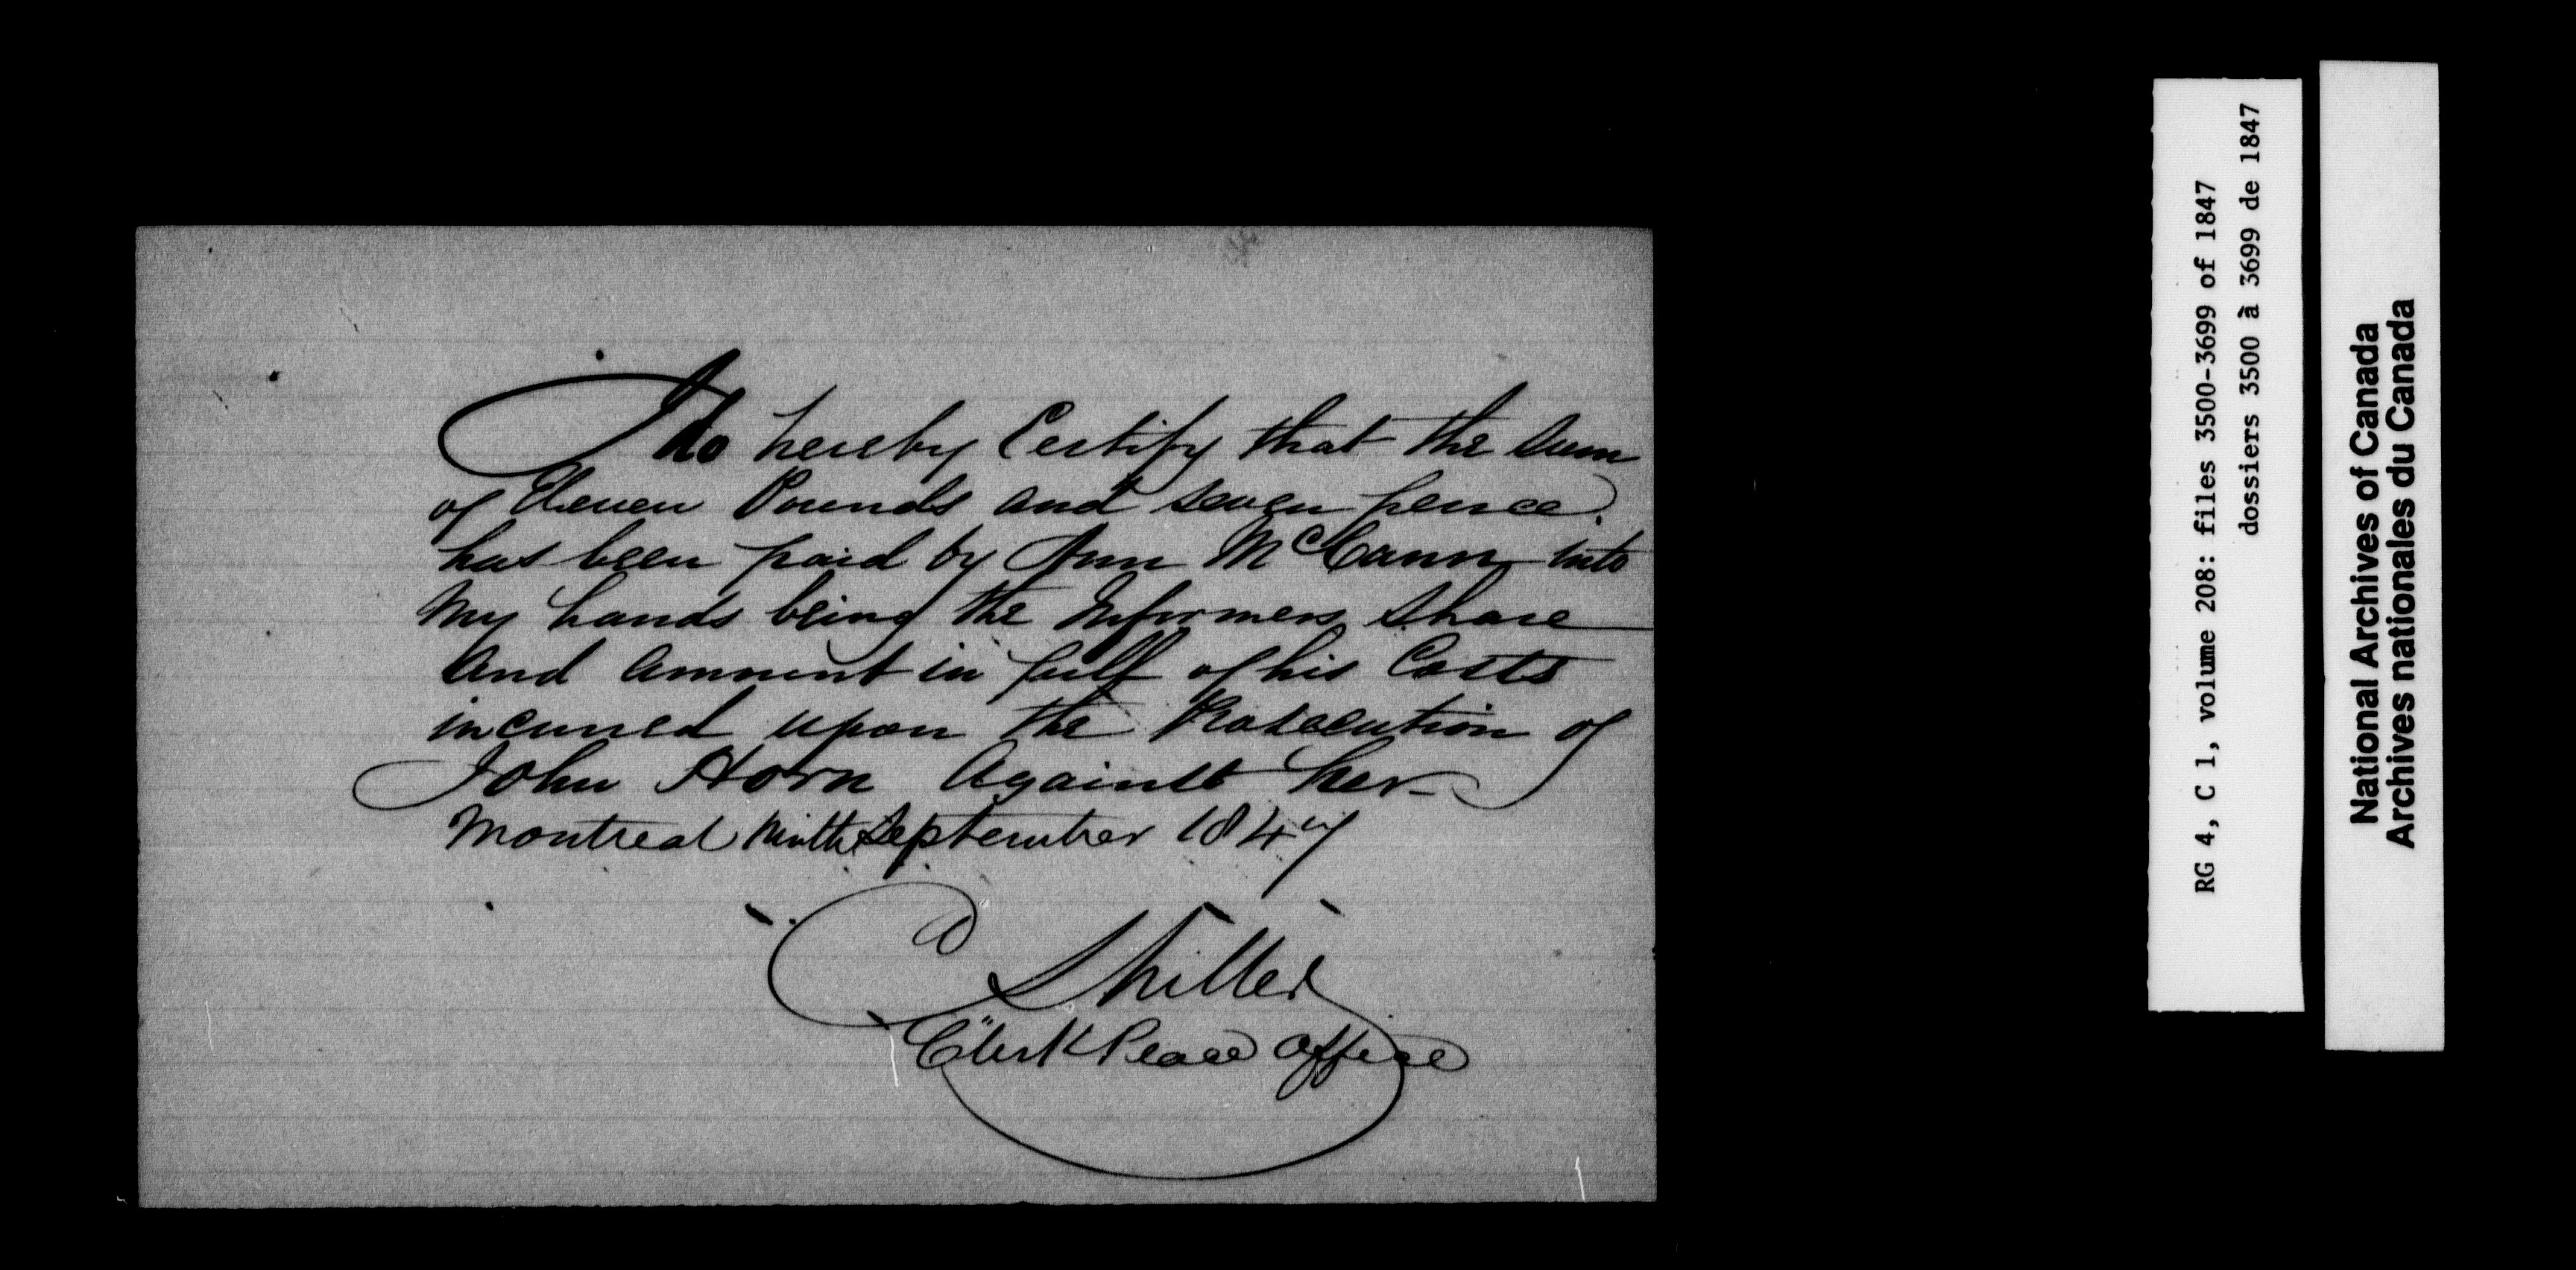 I do hereby Certify that the Sum
of Eleven Pounds and seven pence
has been paid by Ann McCann into
my hands being the Informers Share
and Amount in full of his Costs
incurred upon the Prosecution of
John Horn Against her
Montreal Ninth September 1847
Clerk Peace Office
RG 4, C 1, volume 208: files 3500-3699 of 1847
dossiers 3500 à 3699 de 1847
National Archives of Canada
Archives nationales du Canada